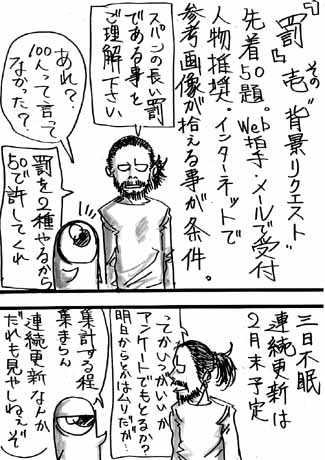 『罰』その壱"背景リクエスト"
先着50題。Web拍手・メールで受付
人物推奨・インターネットで
参考画像が拾える事が条件。
スパンの長い罰
である事を
ご理解下さい
あれ?
100人って言って
なかった?
罰を2種やるから
50で許してくれ
三日不眠
連続更新は
2月末予定
ってかいつがいいか
アンケートでもとるか?
明日からとかはムリだが…
集計する程
集まらん
連続更新なんか
だれも見やしねぇぞ